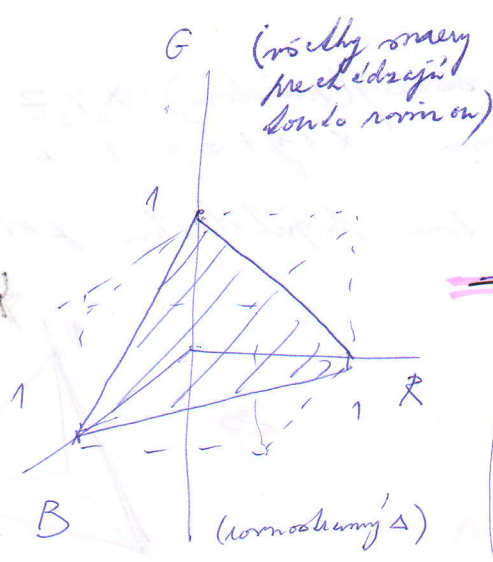 G
(všetky smery
prechádzajú
touto rovinou)
1
1
1
R
B
(rovnostranný Δ)